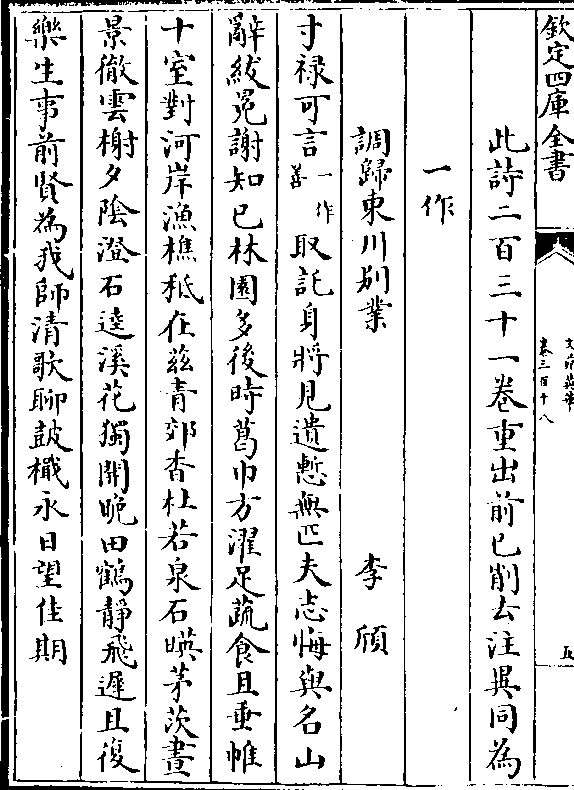 欽定四庫全書
文苑英華
卷三百十八
五
此詩二百三十一卷重出前已削去注異同為
一作
調歸東川别業　李頎
寸禄可言一作善取託身將見遺慙無匹夫志悔與名山
辭紱冕謝知己林園多後時葛巾方濯足蔬食且垂帷
十室對河岸漁樵秪在兹青郊香杜若泉石暎茅茨晝
景徹雲榭夕陰澄石逵溪花獨開晩田鶴靜飛遲且復
樂生事前賢為我師清歌聊鼓檝永日望佳期